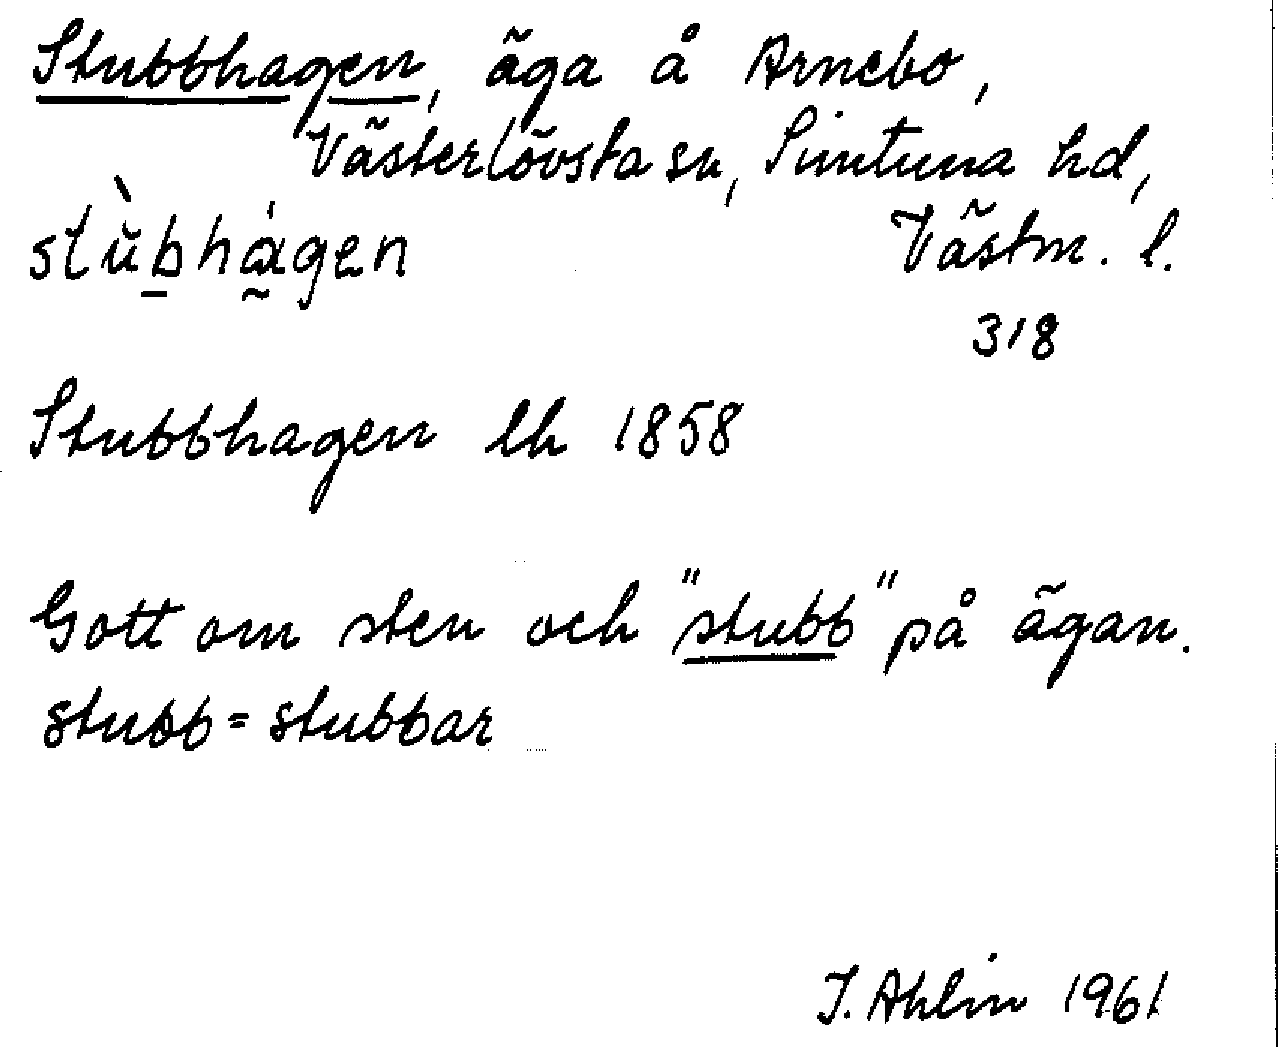 Stubbhagen, äga å Arnebo,
Västerlövsta sn, Simtuna hd,
stùbhágen Västm. l.
318
Stubbhagen lh 1858
Gott om sten och "stubb" på ägan.
stubb = stubbar
J. Ahlin 1961